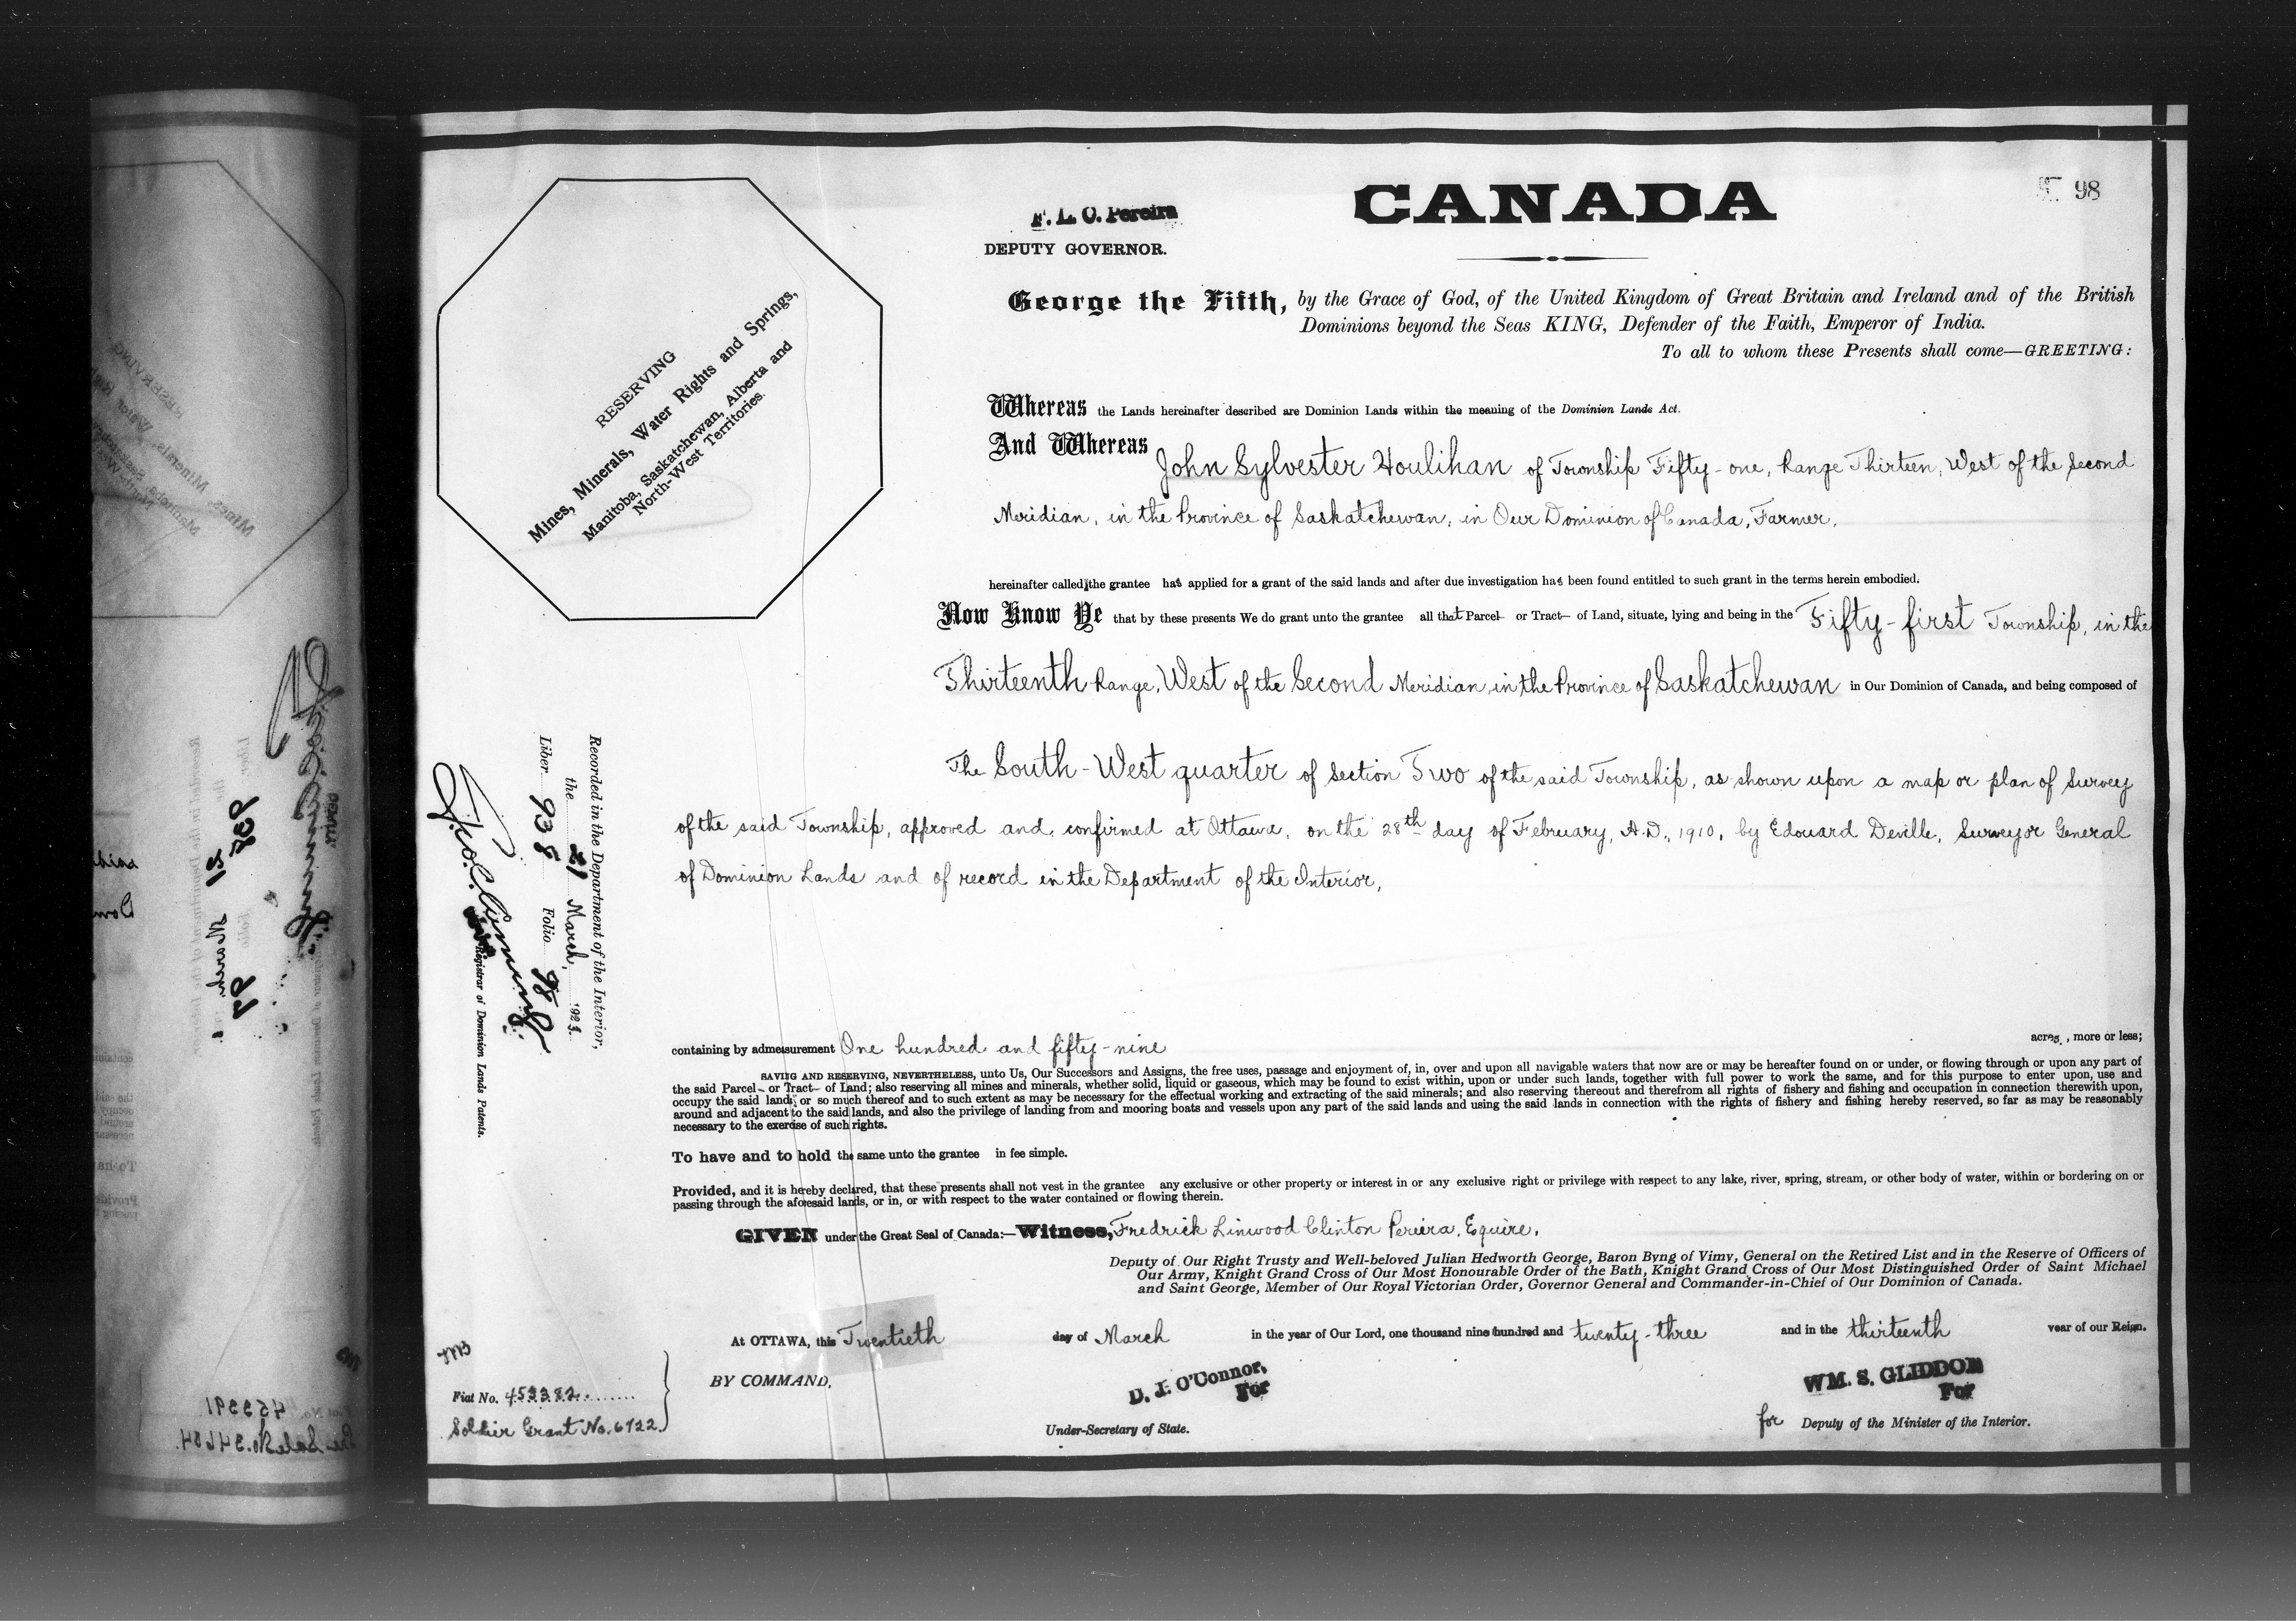 CANADA
98
F. L. O. Pereira
DEPUTY GOVERNOR.
George the Fifth, by the Grace of God, of the United Kingdom of Great Britain and Ireland and of the British
Dominions beyond the Seas KING, Defender of the Faith, Emperor of India.
To all to whom these Presents shall come—GREETING:
RESERVING
Mines, Minerals, Water Rights and Springs,
Manitoba, Saskatchewan, Alberta and
North-West Territories.
Whereas the Lands hereinafter described are Dominion Lands within the meaning of the Dominion Lands Act.
And Whereas John Sylvester Houlihan of Township Fifty-one, Range Thirteen, West of the Second
Meridian, in the Province of Saskatchewan, in Our Dominion of Canada, Farmer,
hereinafter called the grantee has applied for a grant of the said lands and after due investigation has been found entitled to such grant in the terms herein embodied.
Now Know Ye that by these presents We do grant unto the grantee all that Parcel or Tract of Land, situate, lying and being in the Fifty-first Township, in the
Thirteenth Range, West of the Second Meridian, in the Province of Saskatchewan in Our Dominion of Canada, and being composed of
The South-West quarter of Section Two of the said Township, as shown upon a map or plan of Survey
of the said Township, approved and confirmed at Ottawa, on the 28th day of February, A.D., 1910, by Edouard Deville, Surveyor General
of Dominion Lands and of record in the Department of the Interior,
Recorded in the Department of the Interior,
the 21 March, 1923.
Liber 938 Folio 98
Registrar of Dominion Lands Patents.
containing by admeasurement One hundred and fifty-nine acres, more or less;
SAVING AND RESERVING, NEVERTHELESS, unto Us, Our Successors and Assigns, the free uses, passage and enjoyment of, in, over and upon all navigable waters that now are or may be hereafter found on or under, or flowing through or upon any part of
the said Parcel or Tract of Land; also reserving all mines and minerals, whether solid, liquid or gaseous, which may be found to exist within, upon or under such lands, together with full power to work the same, and for this purpose to enter upon, use and
occupy the said lands, or so much thereof and to such extent as may be necessary for the effectual working and extracting of the said minerals; and also reserving thereout and therefrom all rights of fishery and fishing and occupation in connection therewith upon,
around and adjacent to the said lands, and also the privilege of landing from and mooring boats and vessels upon any part of the said lands and using the said lands in connection with the rights of fishery and fishing hereby reserved, so far as may be reasonably
necessary to the exercise of such rights.
To have and to hold the same unto the grantee in fee simple.
Provided, and it is hereby declared, that these presents shall not vest in the grantee any exclusive or other property or interest in or any exclusive right or privilege with respect to any lake, river, spring, stream, or other body of water, within or bordering on or
passing through the aforesaid lands, or in, or with respect to the water contained or flowing therein.
GIVEN under the Great Seal of Canada:—Witness, Fredrick Linwood Clinton Pereira, Equire,
Deputy of Our Right Trusty and Well-beloved Julian Hedworth George, Baron Byng of Vimy, General on the Retired List and in the Reserve of Officers of
Our Army, Knight Grand Cross of Our Most Honourable Order of the Bath, Knight Grand Cross of Our Most Distinguished Order of Saint Michael
and Saint George, Member of Our Royal Victorian Order, Governor General and Commander-in-Chief of Our Dominion of Canada.
At OTTAWA, this Twentieth day of March in the year of Our Lord, one thousand nine hundred and twenty-three and in the thirteenth year of our Reign.
BY COMMAND,
D. J. O'Connor,
For
Under-Secretary of State.
WM. S. GLIDDON
For
for Deputy of the Minister of the Interior.
Fiat No. 453382
Soldier Grant No. 6722